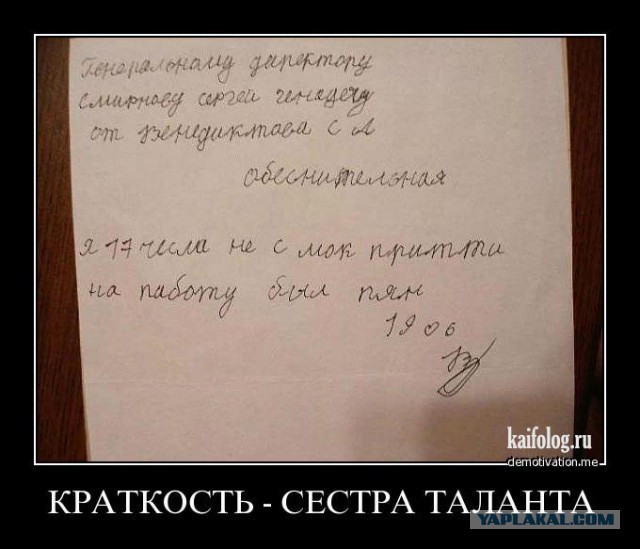 Генеральному директору
смирнову сергей генадечу
от Венедиктова С А
обеснительная
я 17 числа не с мок притти
на работу был пян
19 06
kaifolog.ru
demotivation.me
КРАТКОСТЬ - СЕСТРА ТАЛАНТА
YAPLAKAL.COM